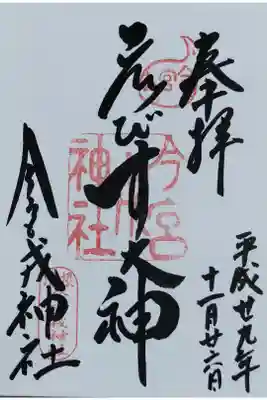 奉拝
平成廿九年
十一月廿六日
ゑびす大神
今宮戎神社
今宮戎神社